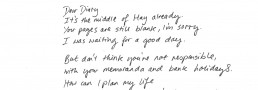 Dear Diary
It's the middle of May already.
Your pages are still blank, I'm sorry.
I was waiting for a good day.
But don't think you're not responsible,
with your memoranda and bank holidays.
How can I plan my life